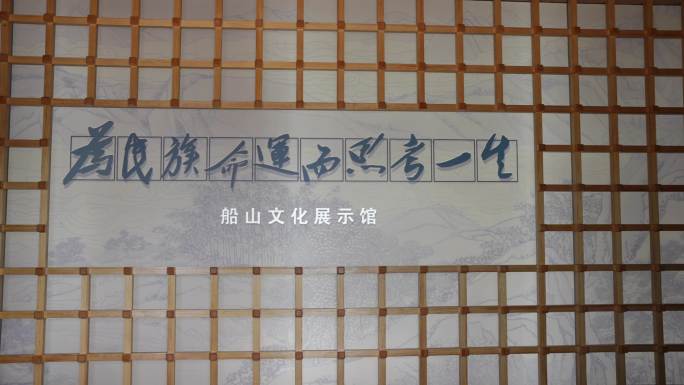 為民族命運而思考一生
船山文化展示馆